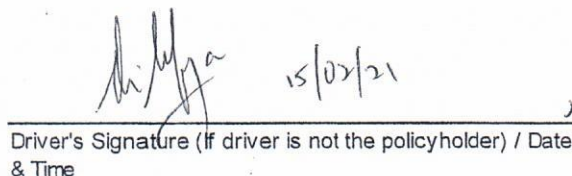 15/02/21
Driver's Signature (If driver is not the policyholder) / Date
& Time